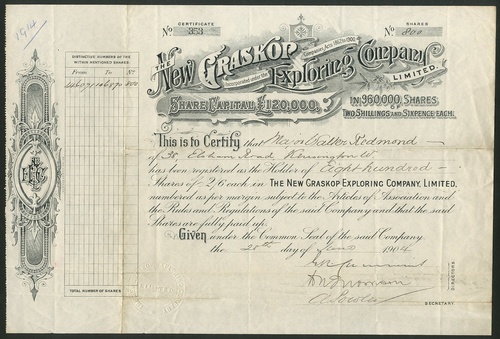 1914
CERTIFICATE
No 353
SHARES
No 800
DISTINCTIVE NUMBERS OF THE
WITHIN MENTIONED SHARES.
From To No
800
THE
NEW GRASKOP
Incorporated under the Companies Acts, 1862 to 1900.
Exploring Company
LIMITED.
SHARE CAPITAL £120,000,
IN 960,000 SHARES
OF TWO SHILLINGS AND SIXPENCE EACH.
This is to Certify that Major Walter Redmond
of 38 Elsham Road Kensington W.
has been registered as the Holder of Eight hundred
Shares of 2/6 each in THE NEW GRASKOP EXPLORING COMPANY, LIMITED,
numbered as per margin subject to the Articles of Association and
the Rules and Regulations of the said Company and that the said
Shares are fully paid up.
Given under the Common Seal of the said Company
the 28th day of June 1904
DIRECTORS
SECRETARY
TOTAL NUMBER OF SHARES